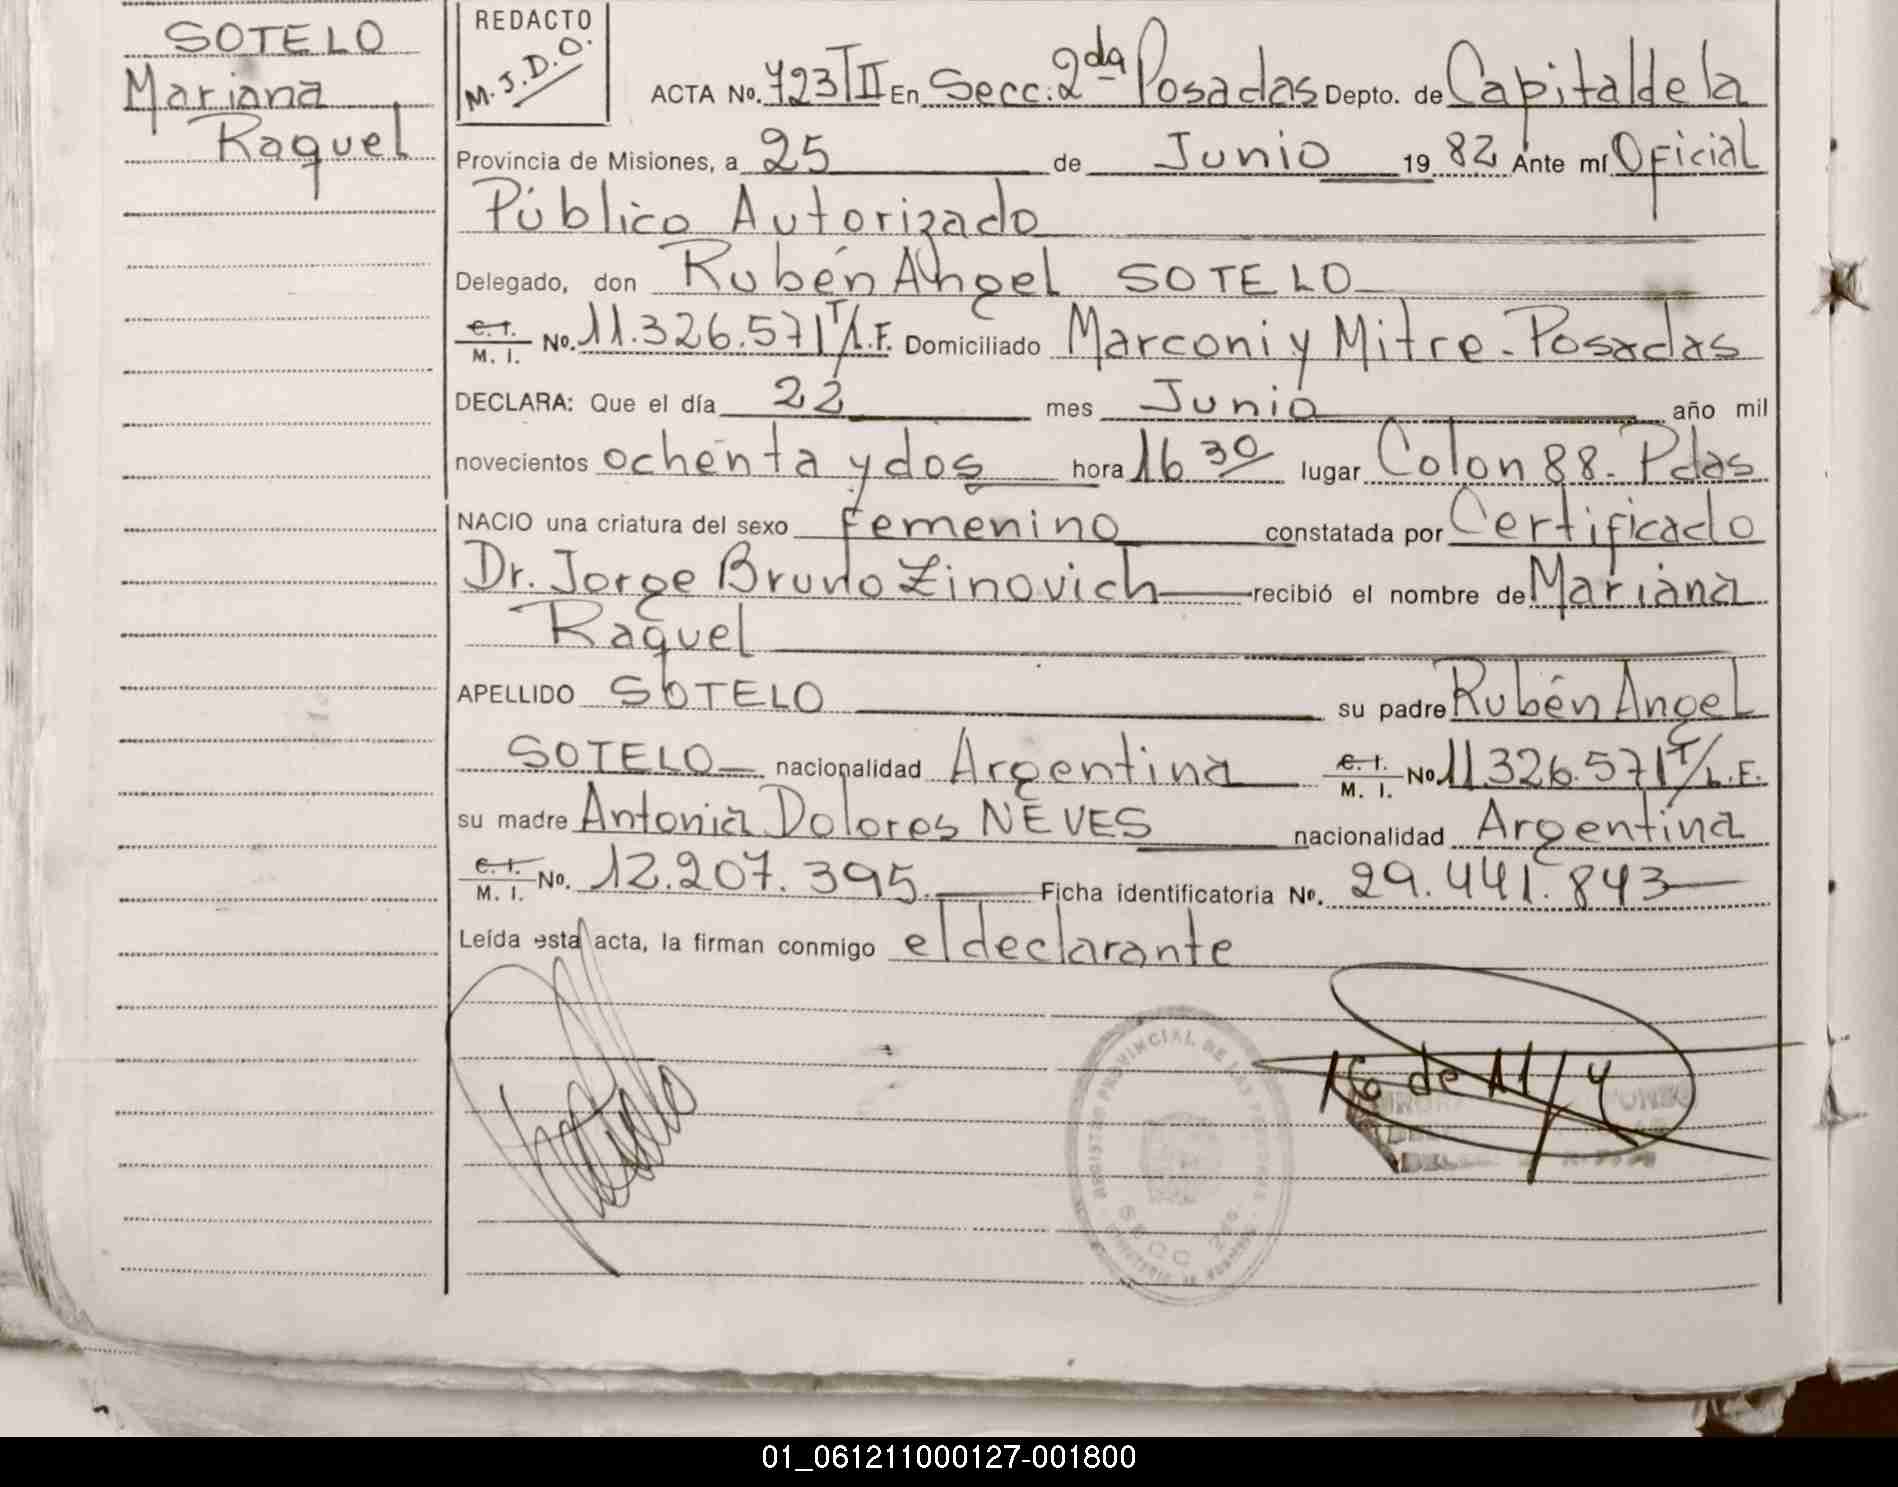 SOTELO
Mariana
Raquel
REDACTO
M.J.D.O.
ACTA No. 723 T II En Secc. 2da Posadas Depto. de Capital de la
Provincia de Misiones, a 25 de Junio 1982 Ante mí Oficial
Público Autorizado
Delegado, don Rubén Angel SOTELO
C. I. / M. I. No. 11.326.571 T/L.F. Domiciliado Marconi y Mitre - Posadas
DECLARA: Que el día 22 mes Junio año mil
novecientos ochenta y dos hora 16 30 lugar Colon 88. Pdas
NACIO una criatura del sexo femenino constatada por Certificado
Dr. Jorge Bruno Zinovich recibió el nombre de Mariana
Raquel
APELLIDO SOTELO su padre Rubén Angel
SOTELO nacionalidad Argentina C. I. / M. I. No 11.326.571 T/L.F.
su madre Antonia Dolores NEVES nacionalidad Argentina
C. I. / M. I. No. 12.207.395. Ficha identificatoria No. 29.441.843
Leída esta acta, la firman conmigo el declarante
16 de 11/4
REGISTRO PROVINCIAL DE LAS PERSONAS
SECC. 2da
01_061211000127-001800